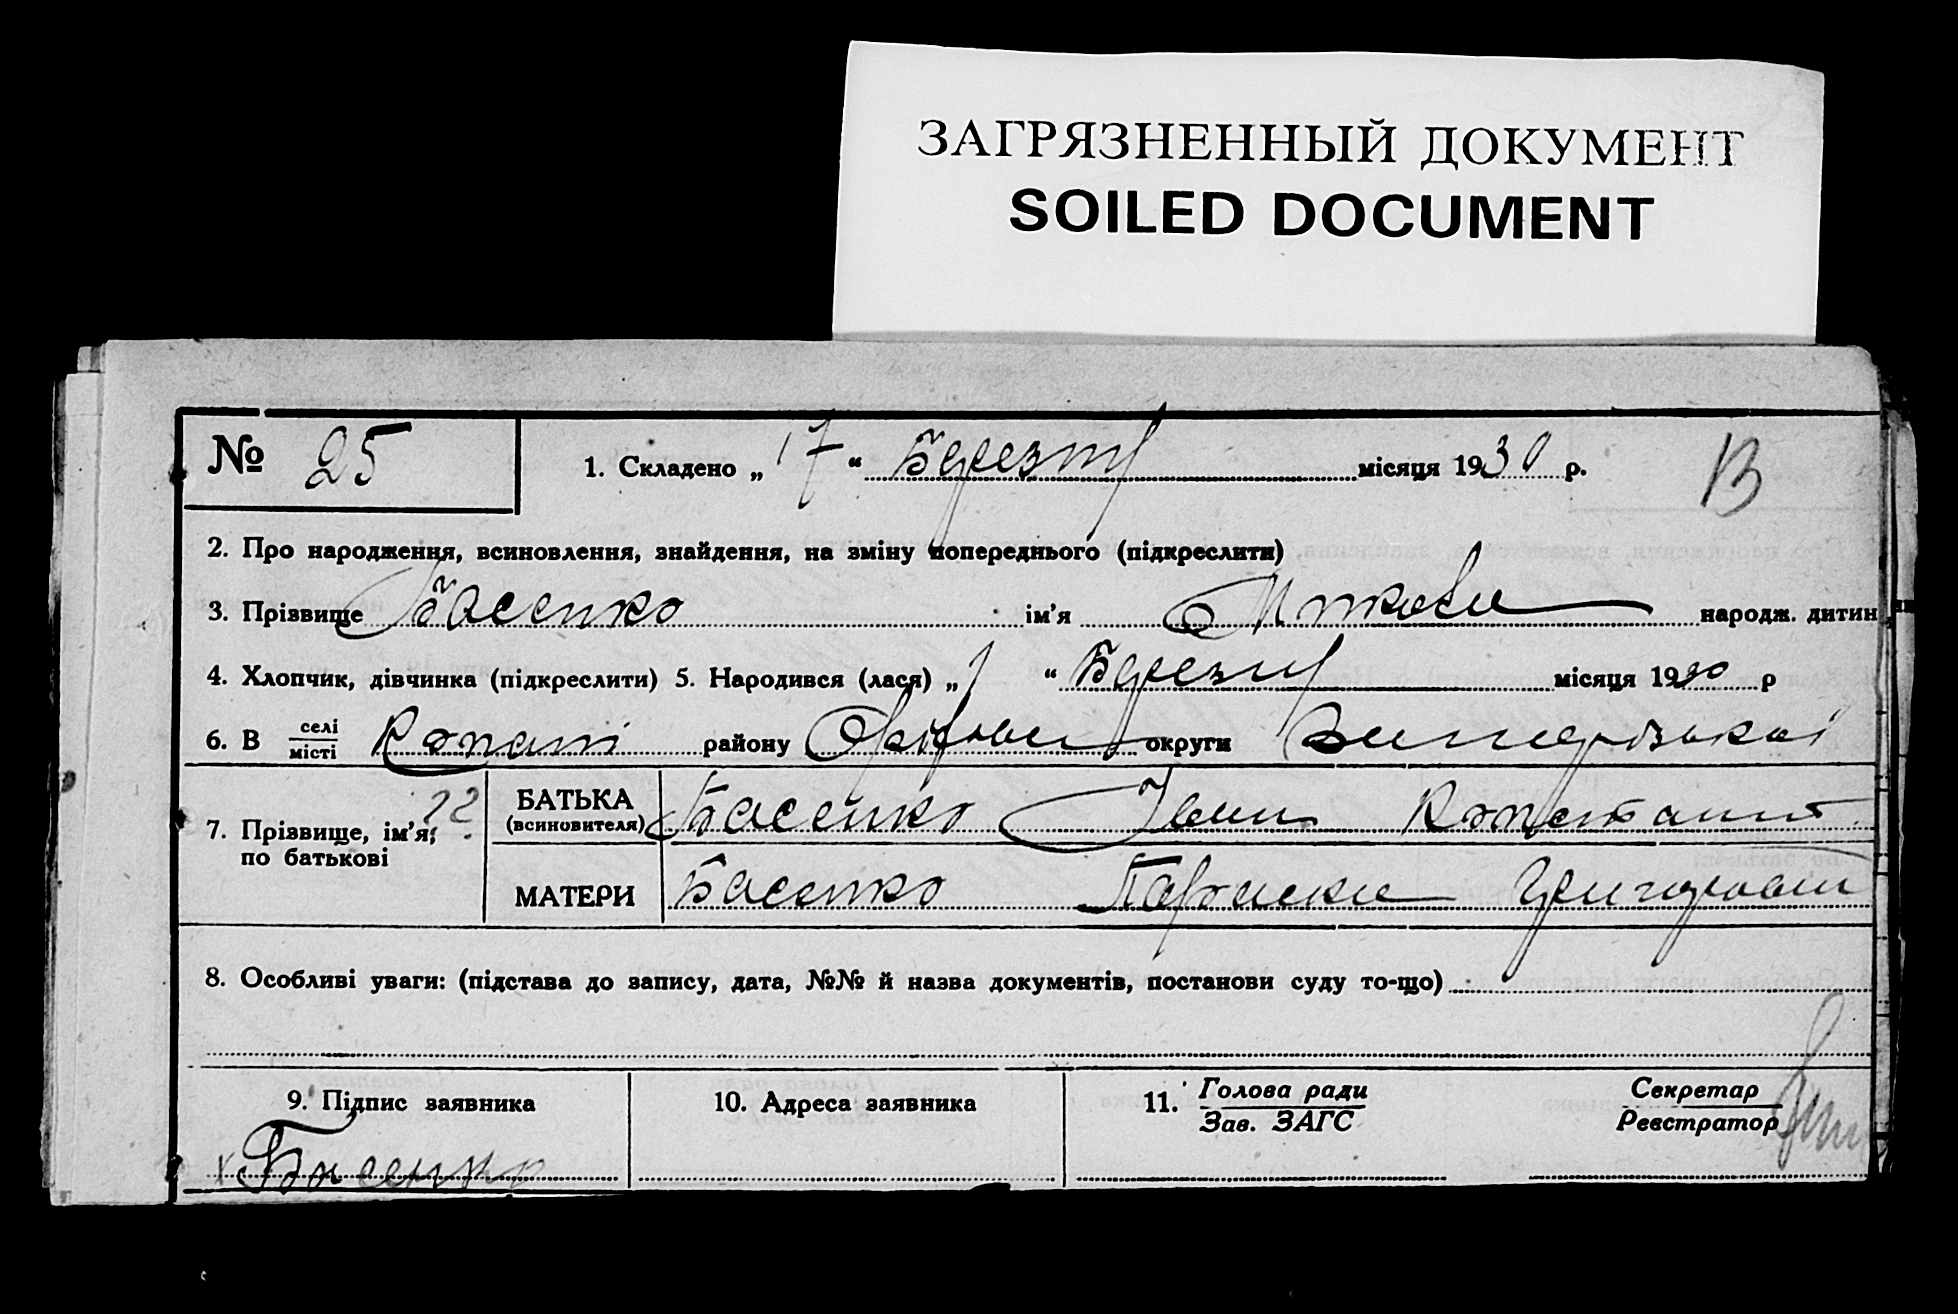 ЗАГРЯЗНЕННЫЙ ДОКУМЕНТ
SOILED DOCUMENT
№ 25
1. Складено „17“ Березня місяця 1930 р.
2. Про народження, всиновлення, знайдення, на зміну попереднього (підкреслити)
3. Прізвище Басенко ім'я народж. дитин
4. Хлопчик, дівчинка (підкреслити) 5. Народився (лася) „ “ Березня місяця 1930 р
6. В селі місті Копані району Оріхов округи
7. Прізвище, ім'я, по батькові
22
БАТЬКА (всиновителя) Басенко Іван Констант.
МАТЕРИ Басенко Параски Григоров
8. Особливі уваги: (підстава до запису, дата, №№ й назва документів, постанови суду то-що)
9. Підпис заявника
10. Адреса заявника
11. Голова ради Зав. ЗАГС
Секретар Реєстратор
Басенко